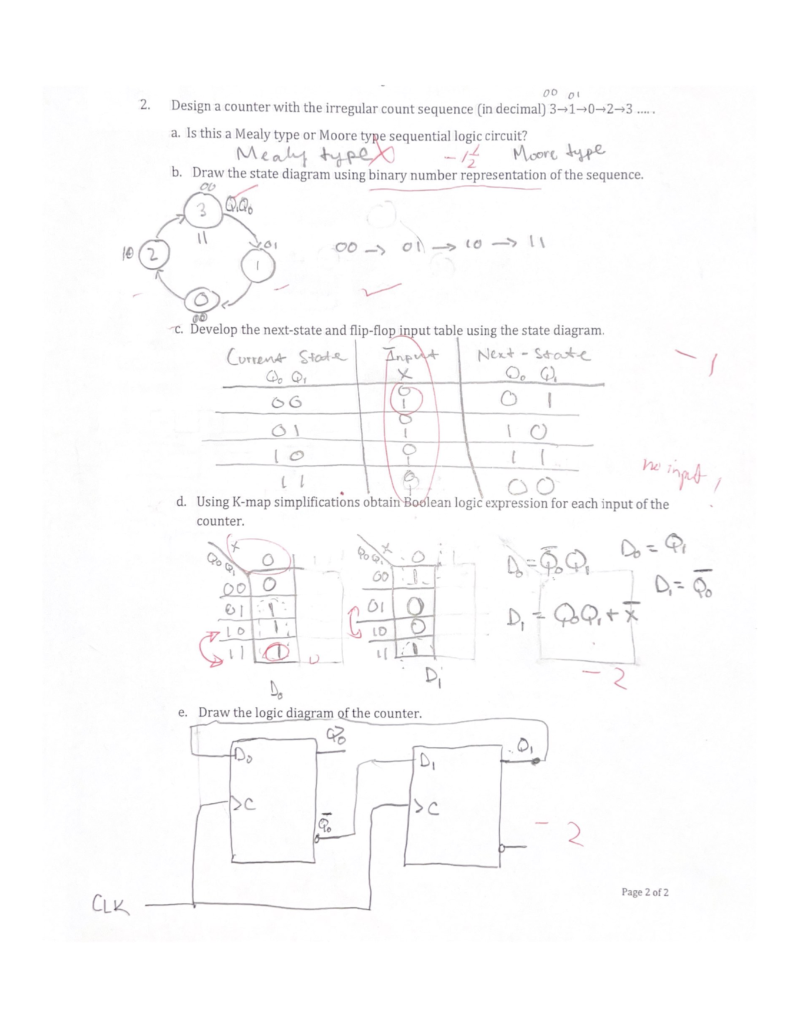 00 01
2. Design a counter with the irregular count sequence (in decimal) 3→1→0→2→3 .....
a. Is this a Mealy type or Moore type sequential logic circuit?
Mealy type X -1½ Moore type
b. Draw the state diagram using binary number representation of the sequence.
00
3 Q₁Q₀
11
10 2 01 00 → 01 → 10 → 11
1
0
00
c. Develop the next-state and flip-flop input table using the state diagram.
Current State Input Next-State -1
Q₀ Q₁ X Q₀ Q₁
00 0 1 0 1
01 0 1 1 0
10 0 1 1 1
11 0 1 00
no input
d. Using K-map simplifications obtain Boolean logic expression for each input of the
counter.
X 0 X 0 D₀ = Q̄₀Q₁ D₀ = Q₁
Q₀Q₁ Q₀Q₁ D₁ = Q̄₀
00 0 00 1
01 1 01 0 D₁ = Q₀Q₁ + X̄
10 1 10 0
11 1 11 1
D₀ D₁ -2
e. Draw the logic diagram of the counter.
D₀ D₁ Q₁
>C >C
Q̄₀ -2
CLK
Page 2 of 2